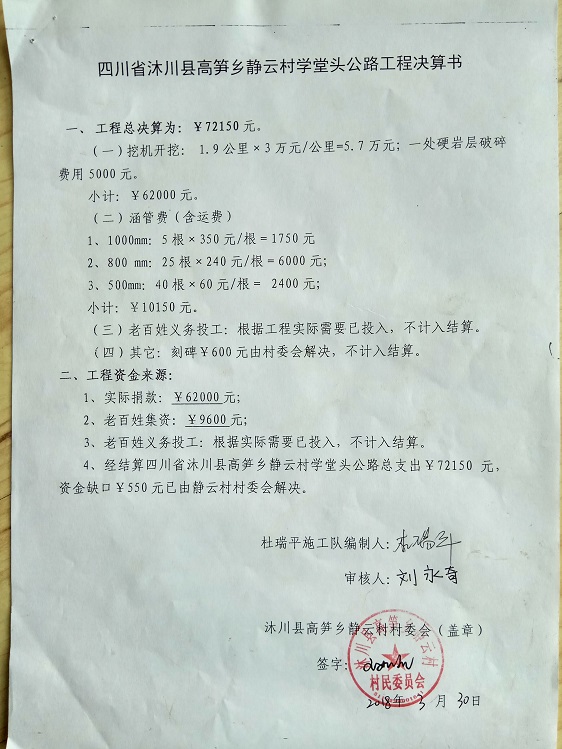 四川省沐川县高笋乡静云村学堂头公路工程决算书
一、工程总决算为：￥72150元。
（一）挖机开挖： 1.9公里×3万元/公里=5.7万元；一处硬岩层破碎
费用5000元。
小计：￥62000元。
（二）涵管费（含运费）
1、1000mm：5根×350元/根=1750元
2、800 mm：25根×240元/根=6000元；
3、500mm：40根×60元/根= 2400元；
小计：￥10150元。
（三）老百姓义务投工：根据工程实际需要已投入，不计入结算。
（四）其它：刻碑￥600元由村委会解决，不计入结算。
二、工程资金来源：
1、实际捐款：￥62000元；
2、老百姓集资：￥9600元；
3、老百姓义务投工：根据实际需要已投入，不计入结算。
4、经结算四川省沐川县高笋乡静云村学堂头公路总支出￥72150 元，
资金缺口￥550元已由静云村村委会解决。
杜瑞平施工队编制人：
审核人：刘永奇
沐川县高笋乡静云村村委会（盖章）
签字：
沐川县高笋乡静云村
村民委员会
2018年 3 月 30日